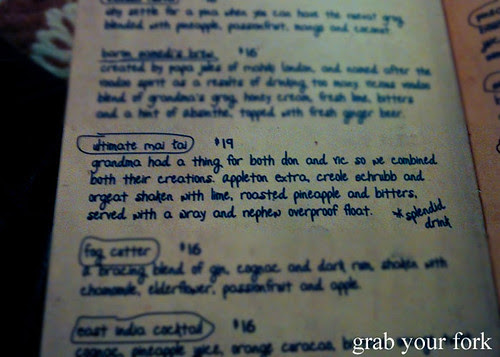 why settle for a pina when you can have the nawat grog,
blended with pineapple, passionfruit, mango and coconut.
baron samedi's brew $16
created by papa jules of mahiki london, and named after the
voodoo spirit as a results of drinking too many. vicious voodoo
blend of grandma's grog, honey cream, fresh lime, bitters
and a hint of absinthe, topped with fresh ginger beer.
ultimate mai tai $19
grandma had a thing for both don and vic so we combined
both their creations. appleton extra, creole schrubb and
orgeat shaken with lime, roasted pineapple and bitters,
served with a wray and nephew overproof float.
* splendid
drink
fog cutter $16
a bracing blend of gin, cognac and dark rum, shaken with
chamomile, elderflower, passionfruit and apple.
east india cocktail $16
cognac, pineapple juice, orange caracao,
grab your fork